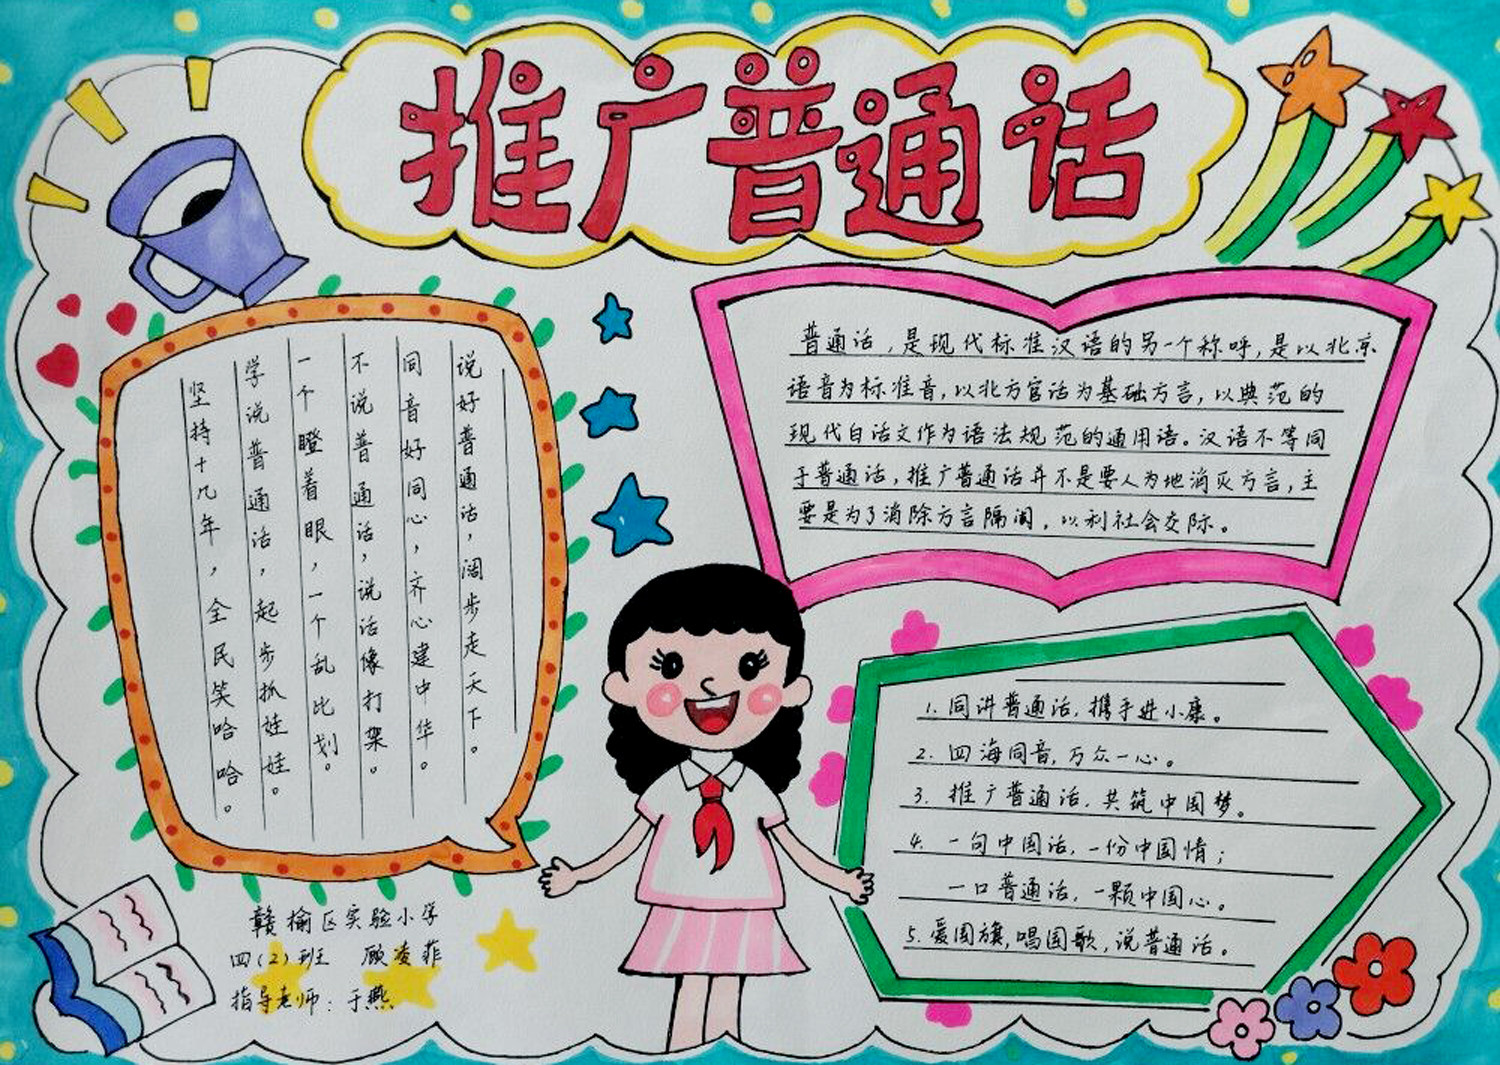 推广普通话
说好普通话，阔步走天下。
同音好同心，齐心建中华。
不说普通话，说话像打架。
一个瞪着眼，一个乱比划。
学说普通话，起步抓娃娃。
坚持十几年，全民笑哈哈。
普通话，是现代标准汉语的另一个称呼，是以北京
语音为标准音，以北方官话为基础方言，以典范的
现代白话文作为语法规范的通用语。汉语不等同
于普通话，推广普通话并不是要人为地消灭方言，主
要是为了消除方言隔阂，以利社会交际。
1. 同讲普通话，携手进小康。
2. 四海同音，万众一心。
3. 推广普通话，共筑中国梦。
4. 一句中国话，一份中国情；
一口普通话，一颗中国心。
5. 爱国旗，唱国歌，说普通话。
赣榆区实验小学
四(2)班 顾凌菲
指导老师：于燕